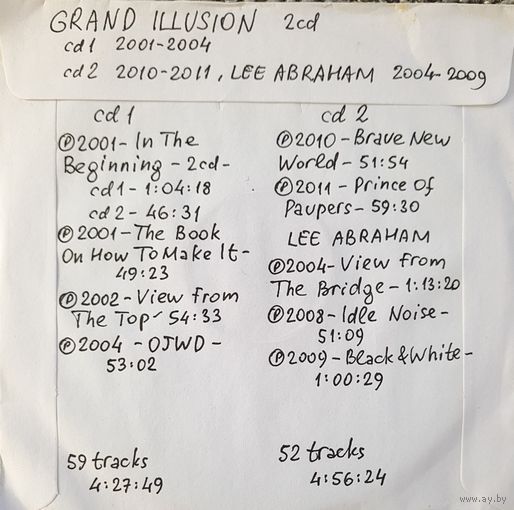 GRAND ILLUSION 2cd
cd1 2001-2004
cd2 2010-2011, LEE ABRAHAM 2004-2009
cd1
℗2001-In The
Beginning-2cd-
cd1-1:04:18
cd2-46:31
℗2001-The Book
On How To Make It-
49:23
℗2002-View from
The Top-54:33
℗2004-OJWD-
53:02
59 tracks
4:27:49
cd2
℗2010-Brave New
World-51:54
℗2011-Prince Of
Paupers-59:30
LEE ABRAHAM
℗2004-View from
The Bridge-1:13:20
℗2008-Idle Noise-
51:09
℗2009-Black&White-
1:00:29
52 tracks
4:56:24
www.ay.by